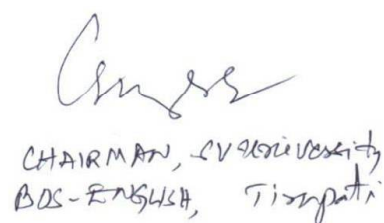 CHAIRMAN, SV University
BOS-ENGLISH, Tirupati